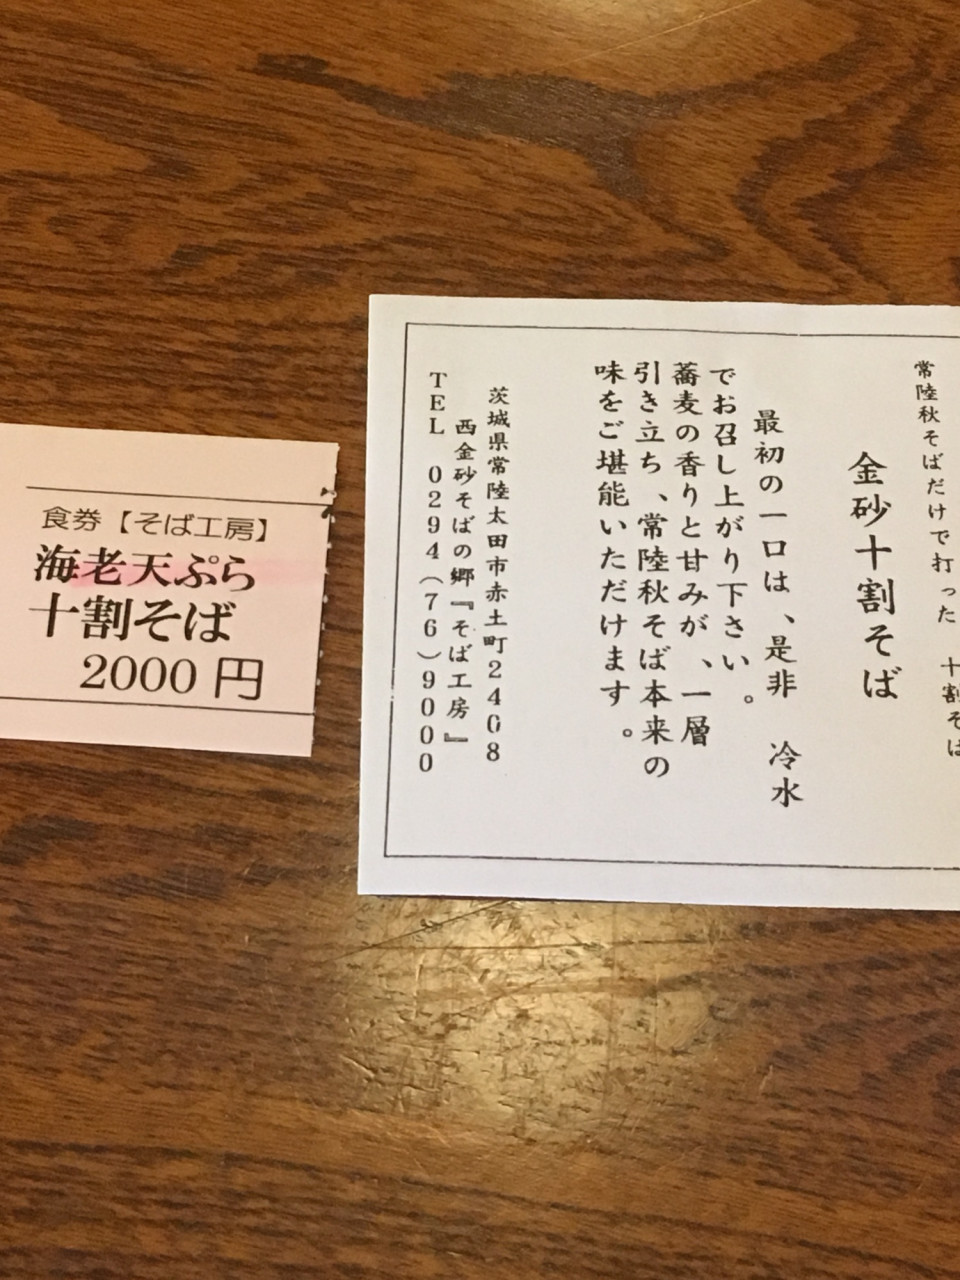 食券【そば工房】
海老天ぷら
十割そば
2000円
常陸秋そばだけで打った 十割そば
金砂十割そば
最初の一口は、是非 冷水
でお召し上がり下さい。
蕎麦の香りと甘みが、一層
引き立ち、常陸秋そば本来の
味をご堪能いただけます。
茨城県常陸太田市赤土町2408
西金砂そばの郷『そば工房』
TEL 0294(76)9000